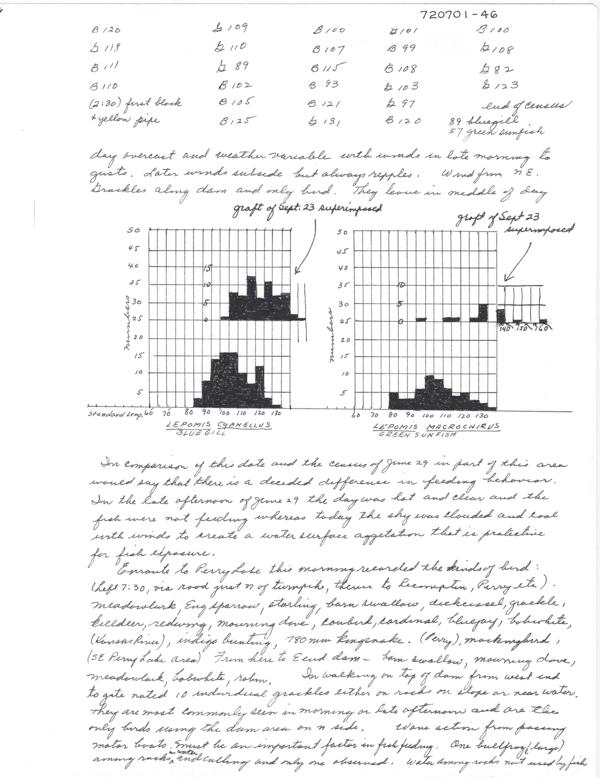 720701-46
B 120 G 109 B 100 G 101 B 100
G 113 G 110 B 107 B 99 G 108
B 111 G 89 B 115 B 108 G 82
B 110 B 102 B 93 G 103 G 123
(2:30) first block B 105 B 121 G 97 end of census
+ yellow pipe B 125 G 131 B 120 89 bluegill
57 green sunfish
day overcast and weather variable with winds in late morning to
gusts. Later winds subside but always ripples. Wind from N E.
Grackles along dam and only bird. They leave in middle of day
graft of Sept. 23 superimposed
graft of Sept 23
superimposed
50
45
40
35
30
25
20
15
10
5
15
10
5
0
numbers
50
45
40
35
30
25
20
15
10
5
10
5
0
numbers
140 150 160
Standard Leng. 60 70 80 90 100 110 120 130
60 70 80 90 100 110 120 130
LEPOMIS CYANELLUS
BLUEGILL
LEPOMIS MACROCHIRUS
GREEN SUNFISH
In comparison of this date and the census of June 29 in part of this area
would say that there is a decided difference in feeding behavior.
In the late afternoon of June 29 the day was hot and clear and the
fish were not feeding whereas today the sky was clouded and cool
with winds to create a water surface aggetation that is protective
for fish exposure.
Enroute to Perry Lake this morning recorded the kinds of bird:
(Left 7:30, via road just N of turnpik, thence to Lecompton, Perry etc).
meadowlark, Eng sparrow, starling, barn swallow, dickcissel, grackle,
killdeer, redwing, mourning dove, cowbird, cardinal, bluejay, bobwhite,
(Kansas River), indigo bunting, 780 mm kingsnake. (Perry), mockingbird,
(SE Perry Lake area) From here to E end dam - barn swallow, mourning dove,
meadowlark, bobwhite, robin. In walking on top of dam from west end
to gate noted 10 individual grackles either on rocks on slope or near water.
They are most commonly seen in morning or late afternoon and are the
only birds using the dam area on N side. Wave action from passing
motor boats must be an important factor in fish feeding. One bullfrog (large)
among rocks in water and calling and only one observed. Water among rocks not used by fish